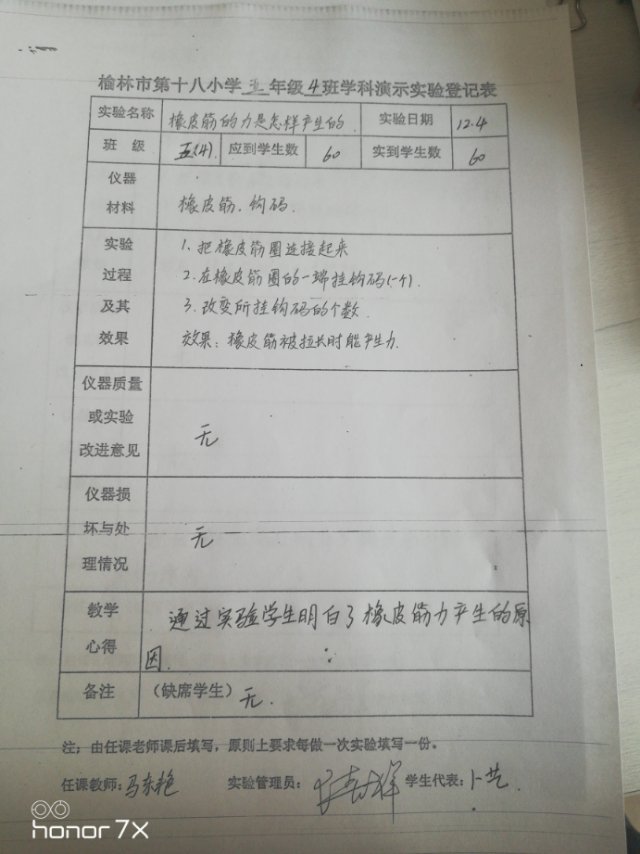 榆林市第十八小学五年级4班学科演示实验登记表
实验名称 橡皮筋的力是怎样产生的 实验日期 12.4
班 级 五(4). 应到学生数 60 实到学生数 60
仪器
材料
橡皮筋.钩码.
实验
过程
及其
效果
1、把橡皮筋圈连接起来
2.在橡皮筋圈的一端挂钩码(一个).
3.改变所挂钩码的个数.
效果:橡皮筋被拉长时能产生力.
仪器质量
或实验
改进意见
无
仪器损
坏与处
理情况
无
教学
心得
通过实验学生明白了橡皮筋力产生的原
因.
备注 (缺席学生) 无.
注:由任课老师课后填写,原则上要求每做一次实验填写一份。
任课教师:马东艳 实验管理员: 学生代表:卜艺
honor 7X